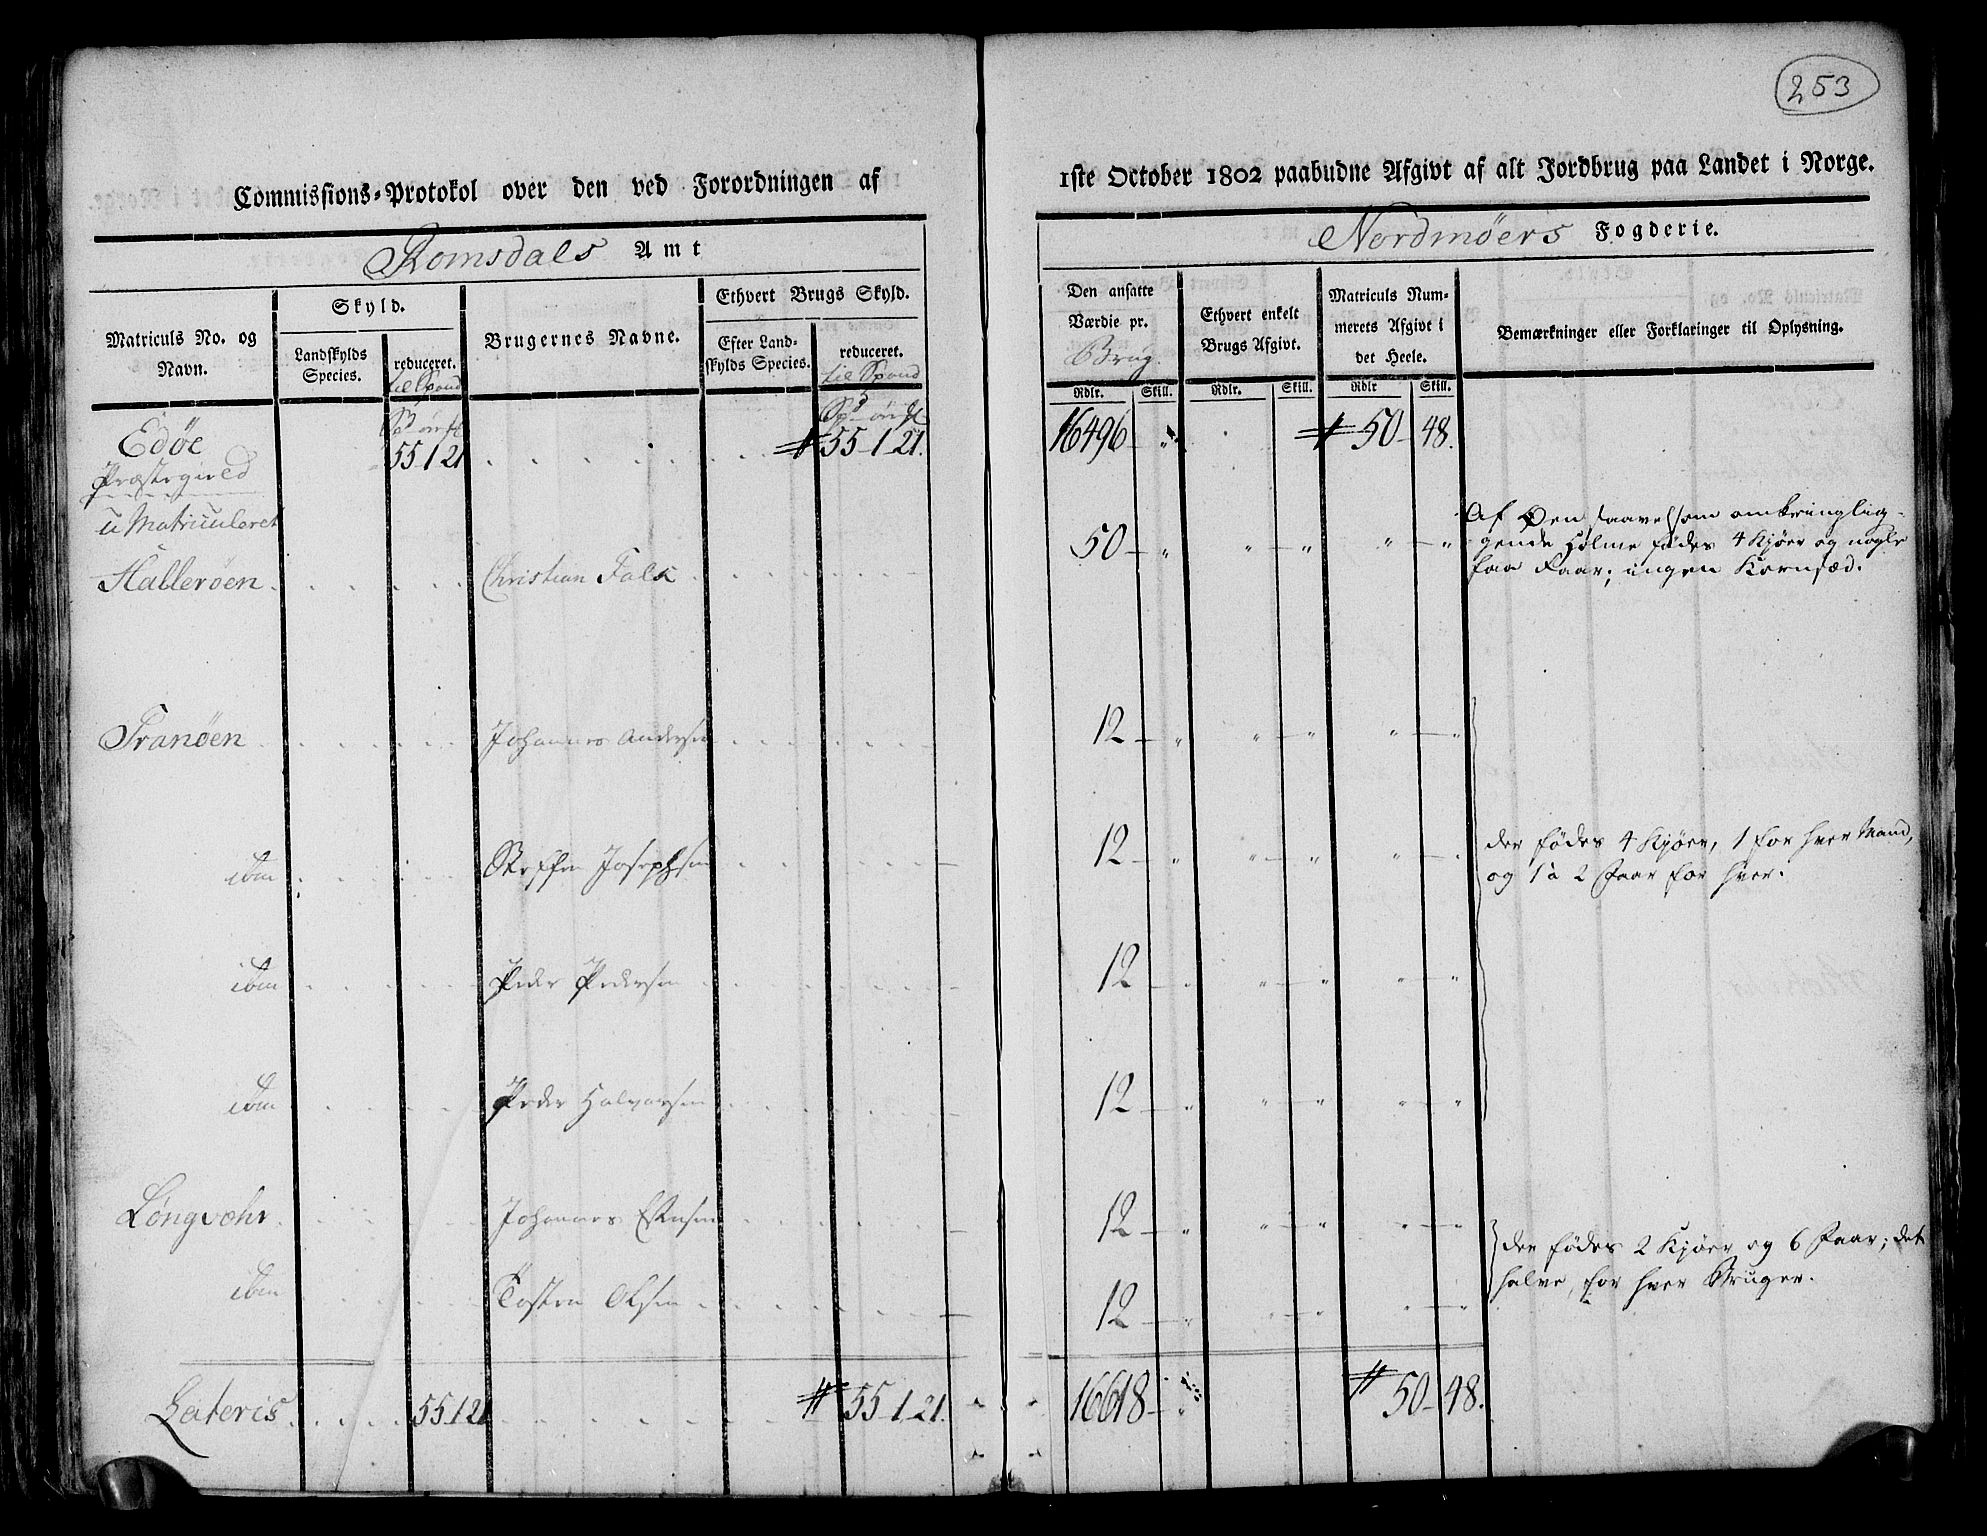 253
Commissions-Protokol over den ved Forordningen af 1ste October 1802 paabudne Afgivt af alt Jordbrug paa Landet i Norge.
Romsdals Amt
Nordmöers Fogderie.
Matriculs No. og Navn.
Skyld.
Landskylds Species.
reduceret.
til Spand
Brugernes Navne.
Ethvert Brugs Skyld.
Efter Landskylds Species.
reduceret.
til Spand
Den ansatte Værdie pr.
Brug.
Ethvert enkelt Brugs Afgivt.
Matriculs Nummerets Afgivt i det Heele.
Bemærkninger eller Forklaringer til Oplysning.
Rdlr. Skill. Rdlr. Skill. Rdlr Skill.
Edöe 55-1-21 55-1-21. 16496 - „ 50-48.
Præstegield
u Matriculeret
Hallerøen Christian Falk 50 - „ „ - „ „ - „
Af Øen saavelsom omkringlig-
gende Holme födes 4 Kjöer og nogle
faa Faar; ingen Kornsæd.
Tranöen Johannes Andersen 12 - „ „ - „ „ - „
ibm Steffen Josephsen 12 - „ „ - „ „ - „
der födes 4 Kjöer, 1 for hver Mand,
og 1 a 2 Faar for hver.
ibm Peder Pedersen 12 - „ „ - „ „ - „
ibm Peder Halvorsen 12 - „ „ - „ „ - „
Longvohr Johannes 12 - „ „ - „ „ - „
der födes 2 Kjöer og 6 Faar; det
halve, for hver Bruger.
ibm Tosten Olsen 12 - „ „ - „ „ - „
Lateris 55-1-21 55-1-21. 16618 - „ 50-48.